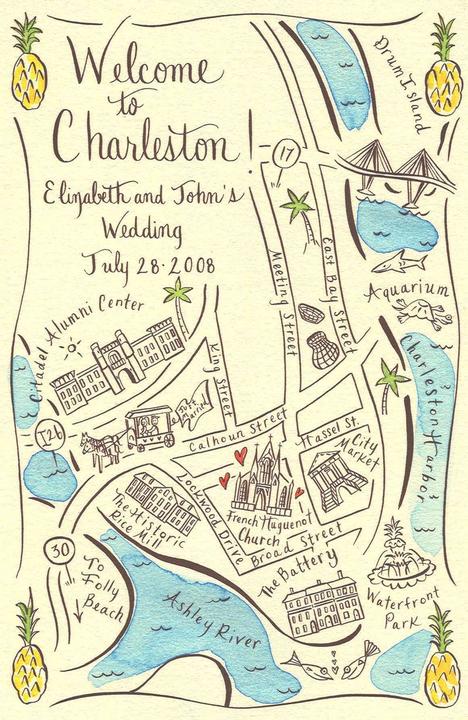 Welcome
to
Charleston!
Elizabeth and John's
Wedding
July 28·2008
Drum Island
17
Aquarium
Meeting Street
East Bay Street
Citadel Alumni Center
King Street
Charleston Harbor
526
Just Married
Calhoun Street
Hassel St.
City
Market
The Historic
Rice Mill
Lockwood Drive
French Huguenot
Church
Broad Street
30
To
Folly
Beach
The Battery
Ashley River
Waterfront
Park